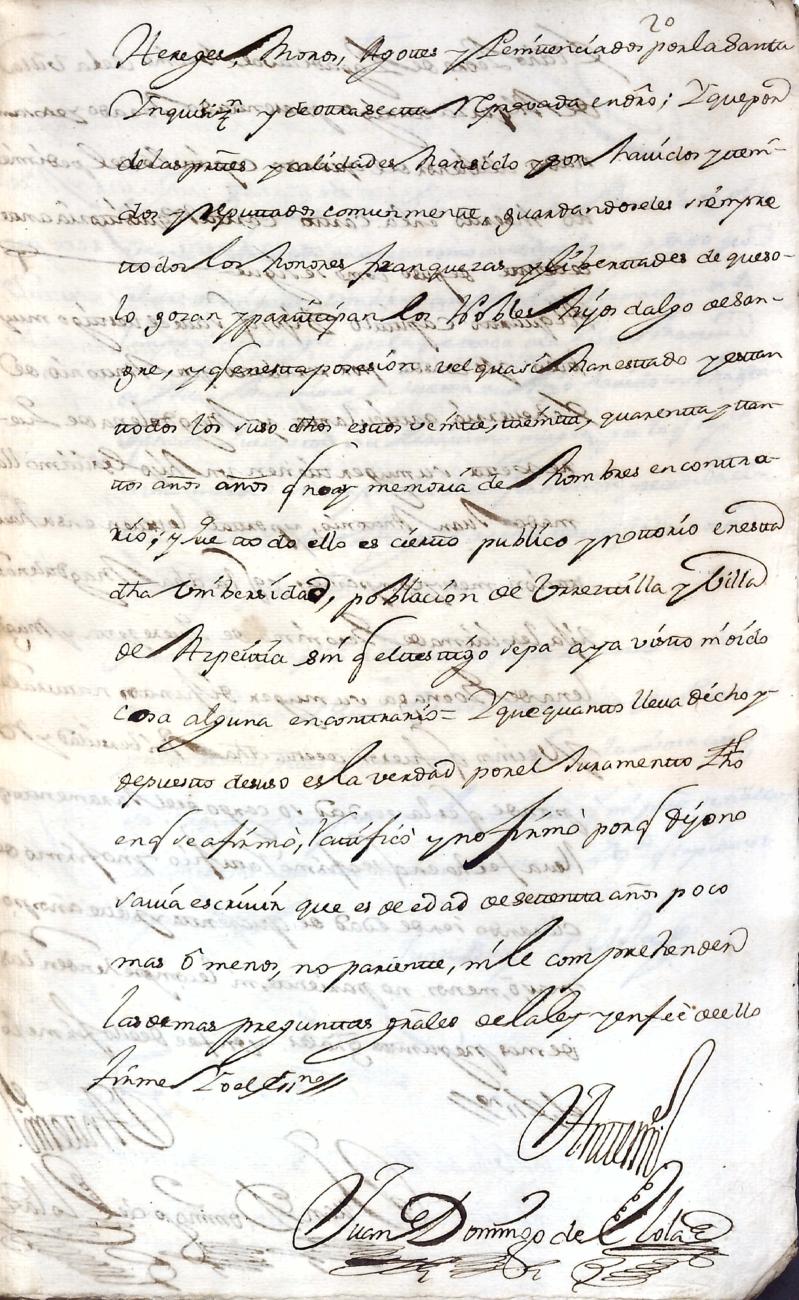 Hereges, Moros, Agotes y Penitenciados por la Santa
Ynquisiz.n y de otra secta Reprovada en dro; Y que por
delas prtes y calidades han sido y son havidos y teni-
dos y reputtados comunmentte, guardandoseles siempre
ttodos los honores franquezas y liberttades de que so-
lo gozan y partticipan los Nobles hijos dalgo de San-
gre, y q en esta posesion vel quasi han esttado y esttan
ttodos los suso dhos esttos veintte, treintta, quarentta y ttan-
ttos años años q no ay memoria de hombres en conttra-
rio; y que ttodo ello es ciertto publico y nottorio en estta
dha Vnibersidad, poblacion de Vrresttilla y Villa
de Azpeittia sin q el testtigo sepa aya vistto ni oido
cosa alguna en conttrario= Y que quantto lleva dicho y
depuestto desuso es la verdad por el Juramentto dho
en q se afirmò, Rattificò y no firmò porq dijo no
savia escrivir que es de edad de settentta años poco
mas ô menos, no parientte, ni le comprehenden
las demas preguntas grâles de la ley y en feè de ello
firme Yo el Ess.no
Antemi
Juan Domingo de Elola